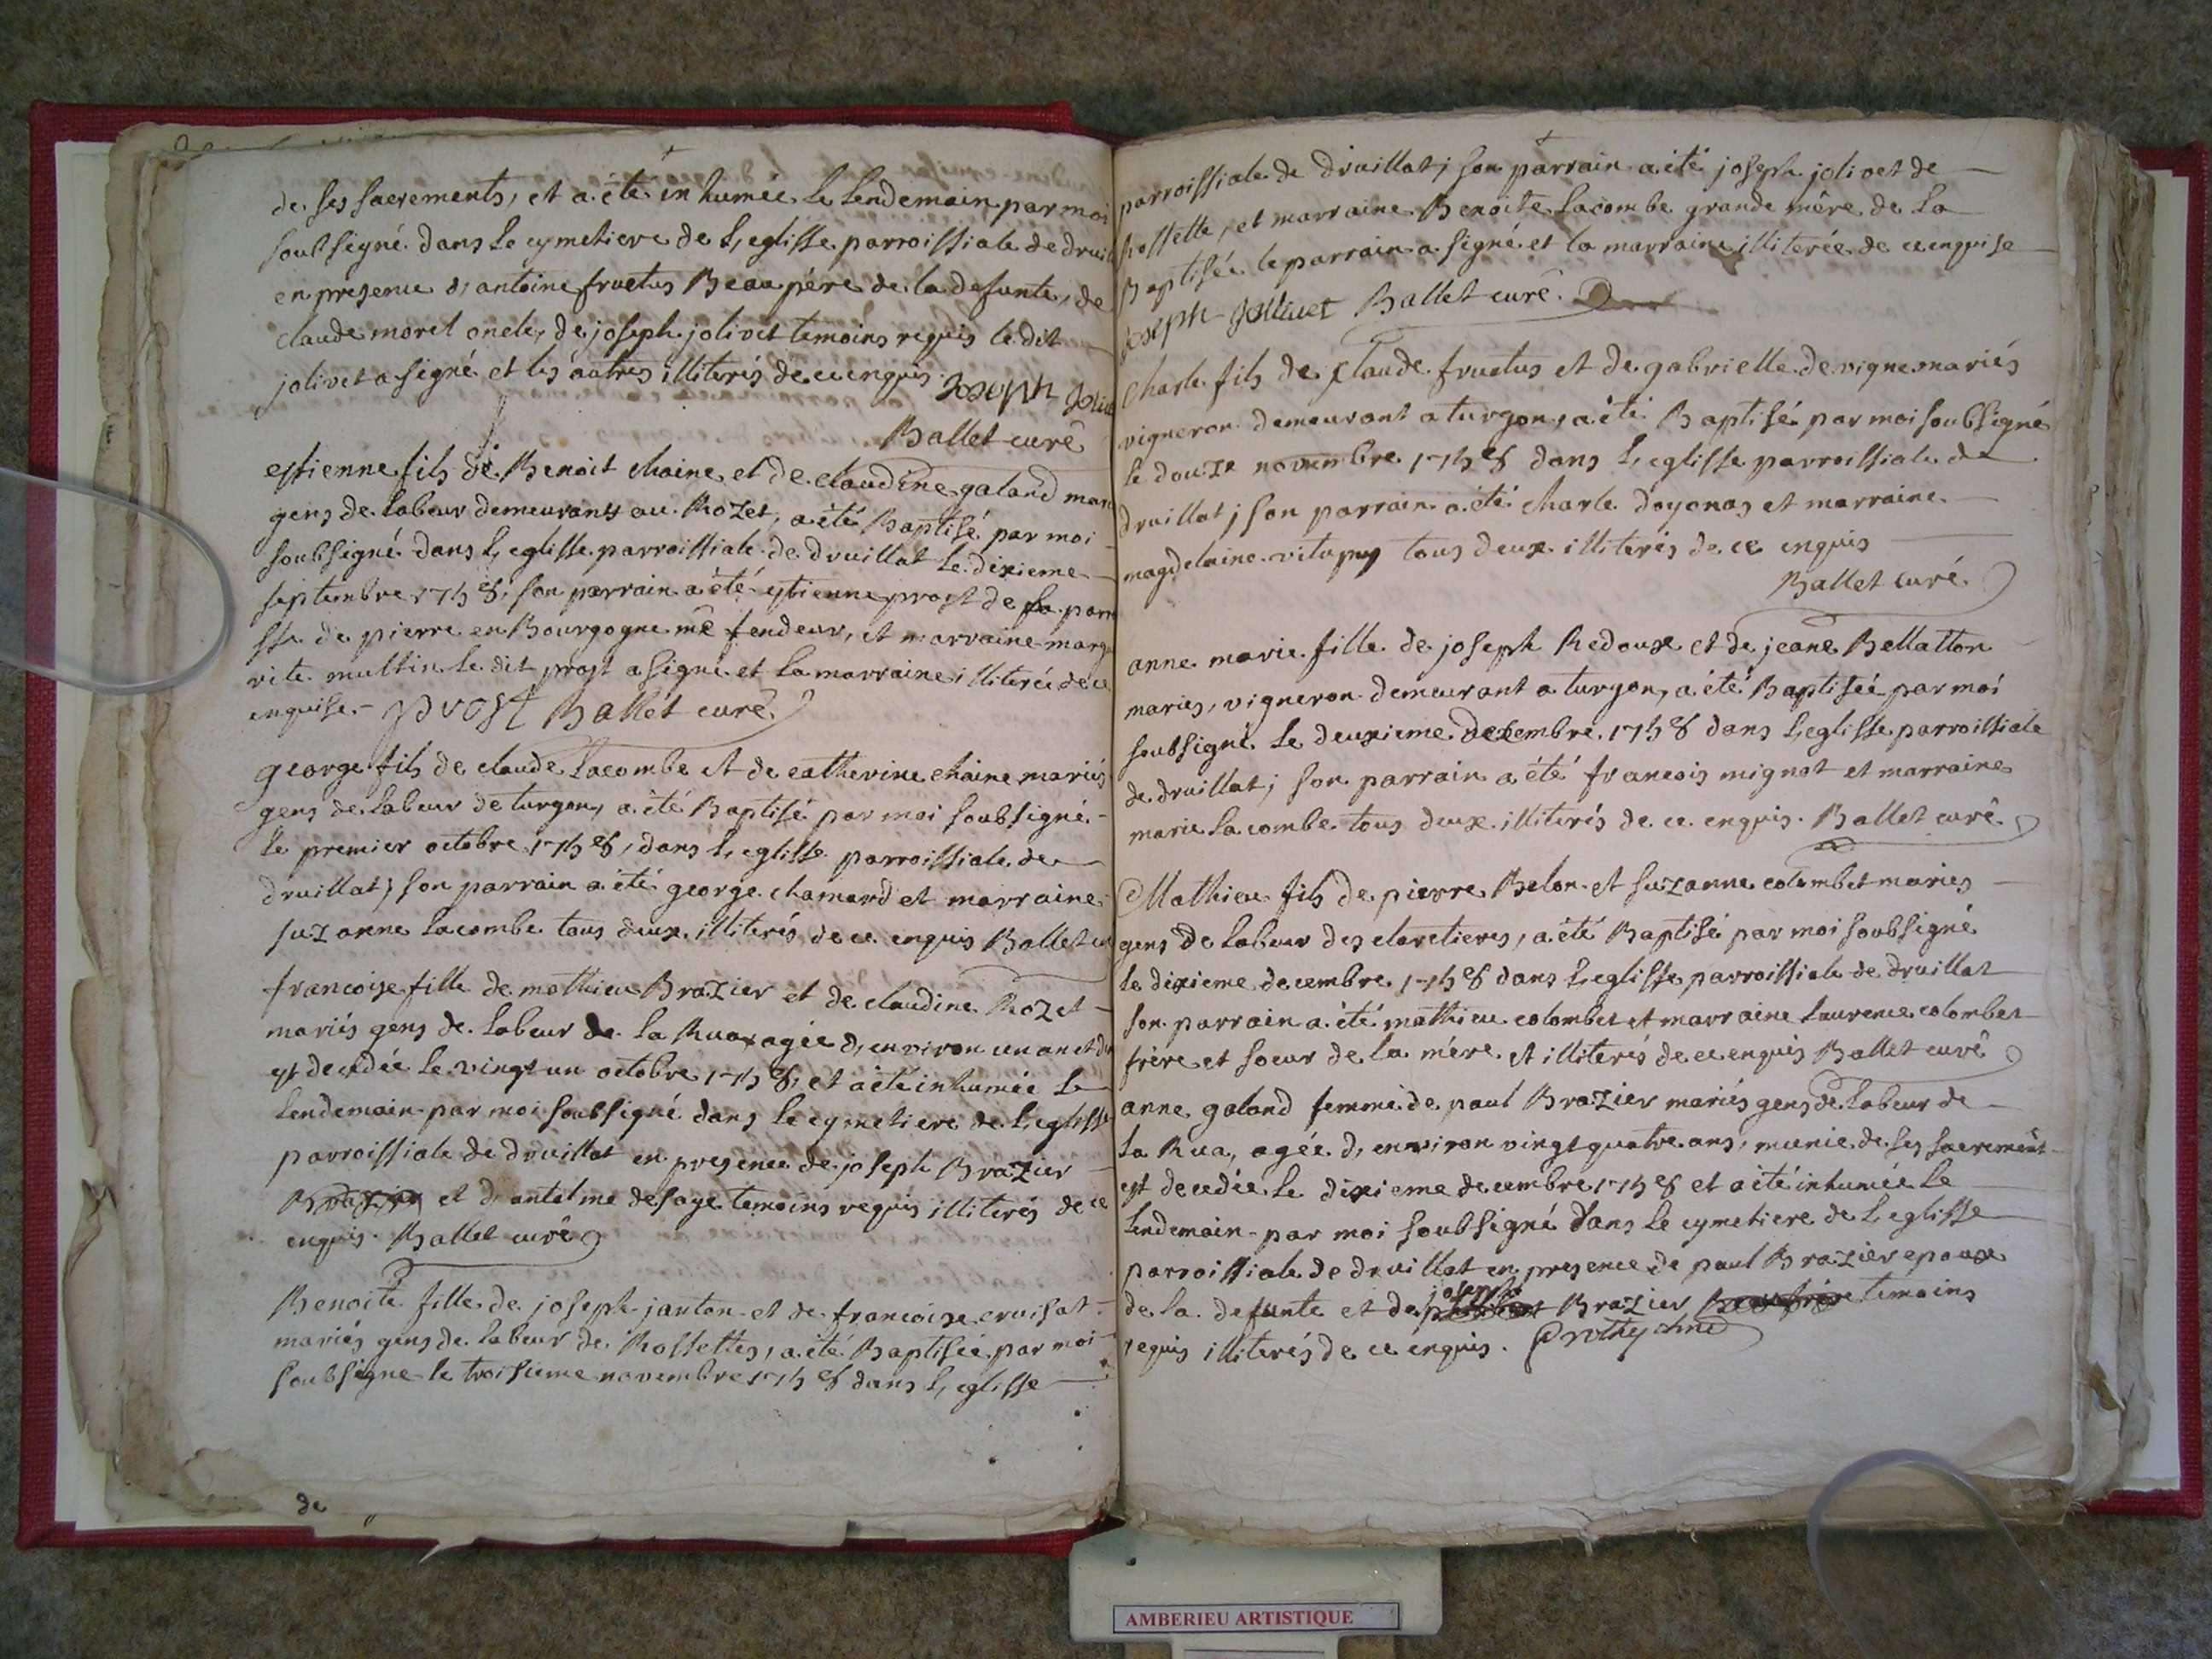 de ses sacrements, et a été inhumée le lendemain par moi
soubsigné dans le cymetiere de l,eglisse parroissiale de druil
en presence d, antoine fructus Beaupére de la defunte, de
claude morel oncle, de joseph jolivet temoins requis le dit
jolivet a signé et les autres illiterés de ce enquis. Joseph Joliv
Ballet curé
estienne fils de Benoit chaine et de claudine galand mari
gens de labeur demeurants au Rozet, a été Baptisé par moi
soubsigné dans l,eglisse parroissiale de druillat le dixieme
septembre 1758; son parrain a été estienne prost de la parroi
sse de pierre en Bourgogne me fendeur, et marraine margue
rite multin le dit prost a signé et la marraine illiterée de ce
enquise. prost Ballet curé
george fils de claude Lacombe et de catherine chaine mariés
gens de labeur de turgon, a été Baptisé par moi soubsigné
le premier octobre 1758, dans l,eglisse parroissiale de
druillat; son parrain a été george chamard et marraine
suzanne Lacombe tous deux illiterés de ce enquis Ballet cu
francoise fille de mathieu Brazier et de claudine Rozet
mariés gens de labeur de la Rua agée d,environ un an et d
est decedée le vingt un octobre 1758, et a été inhumée le
lendemain par moi soubsigné dans le cymetiere de l,eglisse
parroissiale de druillat en presence de joseph Brazier
Brazier et d, antelme desage temoins requis illiterés de ce
enquis. Ballet curé
Benoite fille de joseph janton et de francoise cruisat
mariés gens de labeur de Rossettes, a été Baptisée par moi
soubsigne le troisieme novembre 1758 dans l,eglisse
de
parroissiale de druillat; son parrain a été joseph jolivet de
Rossette, et marraine Benoite Lacombe grande mère de la
Baptisée le parrain a signé et la marraine illiterée de ce enquise
Joseph Jollivet Ballet curé.
Charle fils de Claude fructus et de gabrielle devigne mariés
vigneron demeurant a turgon, a été Baptisé par moi soubsigné
le douze novembre 1758 dans l,eglisse parroissiale de
druillat; son parrain a été charle doyonas et marraine
magdelaine vitupuy tous deux illiterés de ce enquis
Ballet curé.
anne marie fille de joseph Redoux et de jeane Bellatton
mariés, vigneron demeurant a turgon, a été Baptisée par moi
soubsigné le deuxieme decembre 1758 dans l,eglisse parroissiale
de druillat; son parrain a été francois mignot et marraine
marie Lacombe tous deux illiterés de ce enquis. Ballet curé
Mathieu fils de pierre Belon et suzanne colombet mariés
gens de labeur des claretieres, a été Baptisé par moi soubsigné
le dixieme decembre 1758 dans l,eglisse parroissiale de druillat
son parrain a été mathieu colombet et marraine laurence colombet
frère et soeur de la mére et illiterés de ce enquis Ballet curé
anne galand femme de paul Brazier mariés gens de labeur de
la Rua, agée d, environ vingt quatre ans, munie de ses sacrement
est decedée le dixieme decembre 1758 et a été inhumée le
lendemain par moi soubsigné dans le cymetiere de l,eglisse
parroissiale de druillat en presence de paul Brazier epoux
joseph
de la defunte et de Brazier Beaufrère temoins
requis illiterés de ce énquis.
AMBERIEU ARTISTIQUE